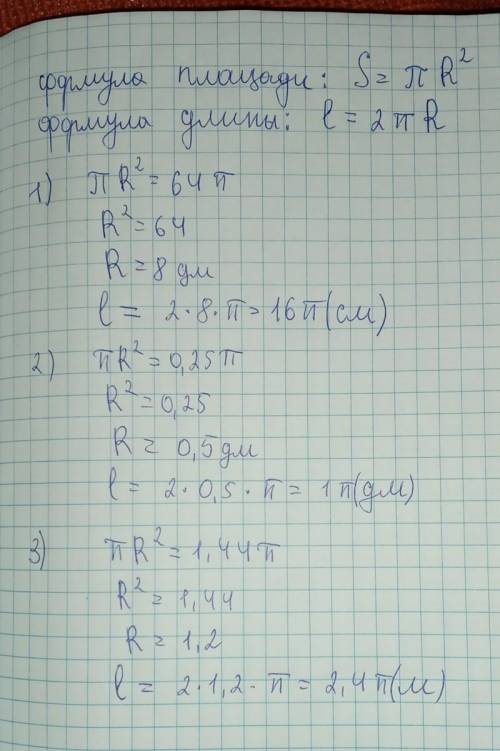 формула площади: S = πR²
формула длины: l = 2πR
1) πR² = 64π
R² = 64
R = 8 дм
l = 2·8·π = 16π(см)
2) πR² = 0,25π
R² = 0,25
R = 0,5 дм
l = 2·0,5·π = 1π(дм)
3) πR² = 1,44π
R² = 1,44
R = 1,2
l = 2·1,2·π = 2,4π(м)